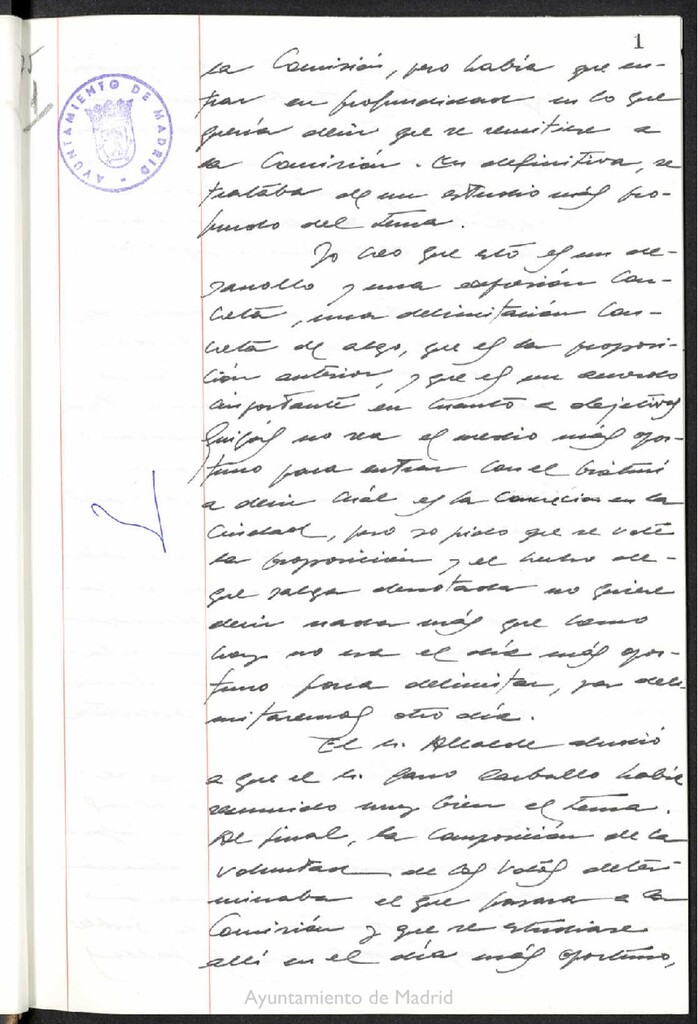 1
AYUNTAMIENTO DE MADRID
la Comisión, pero había que en-
trar en profundidad en lo que
quería decir que se remitiese a
la Comisión. En definitiva, se
trataba de un estudio más pro-
fundo del tema.
Yo creo que esto es un de-
sarrollo y una expresión con-
creta, una delimitación con-
creta de algo, que es la proposi-
ción anterior, y que es un acuerdo
importante en cuanto a objetivos
Quizás no sea el medio más opor-
tuno para entrar con el bisturí
a decir cuál es la corrección en la
Ciudad, pero yo pido que se vote
la proposición y el hecho de-
que salga derrotada no quiere
decir nada más que como
hoy no era el día más opor-
tuno para delimitar, ya deli-
mitaremos otro día.
El Sr. Alcalde aludió
a que el Sr. Carballo había
resumido muy bien el tema.
Al final, la composición de la
voluntad de los votos deter-
minaba el que pasara a la
Comisión y que se estudiase
allí en el día más oportuno,
Ayuntamiento de Madrid